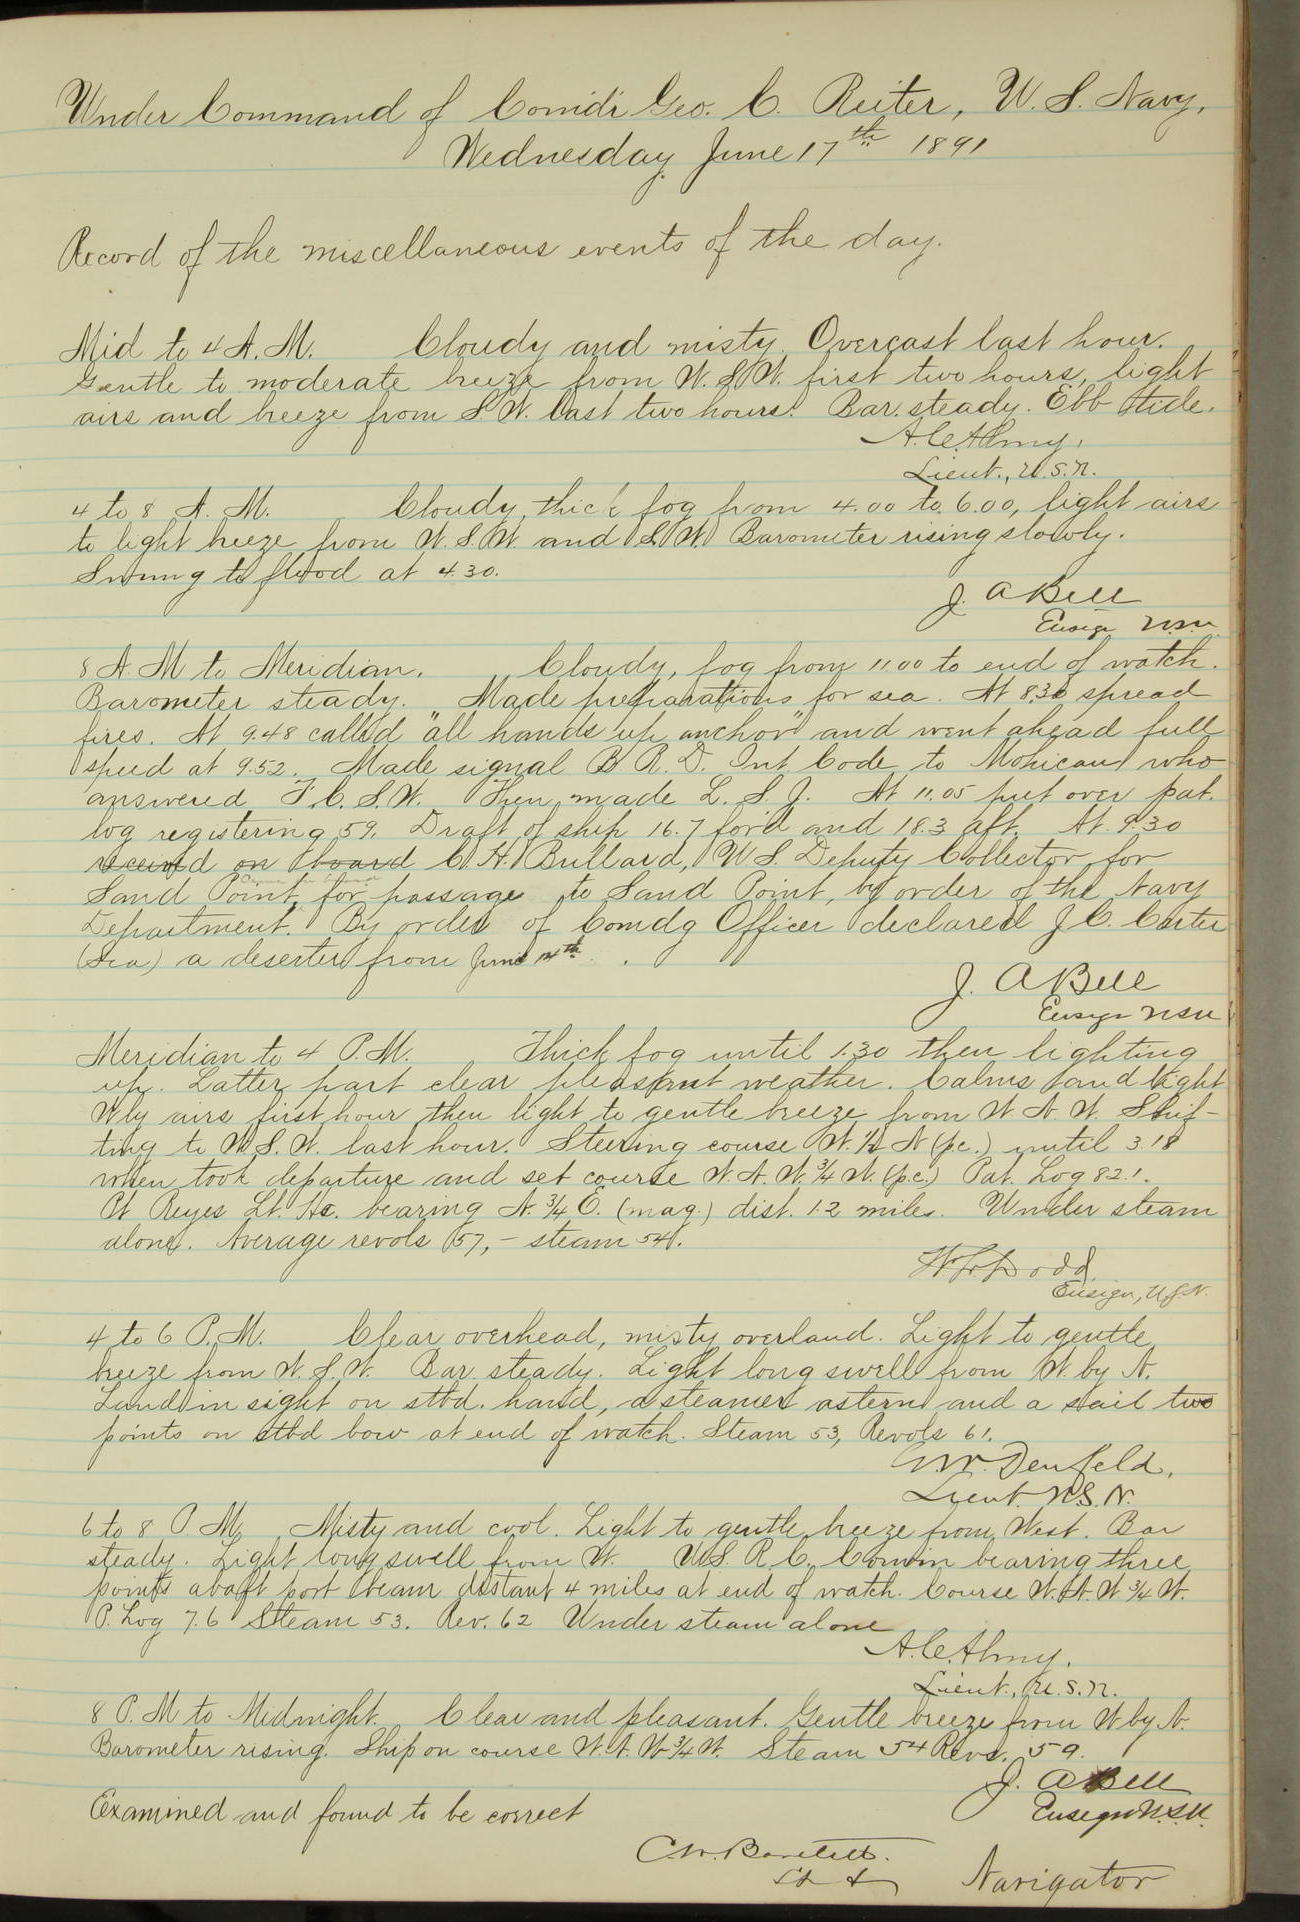 Under Command of Comdr Geo. C. Reiter, U. S. Navy,
Wednesday June 17th 1891
Record of the miscellaneous events of the day.
Mid to 4 A.M. Cloudy and misty. Overcast last hour.
Gentle to moderate breeze from W.S.W. first two hours, light
airs and breeze from S.W. last two hours. Bar. steady. Ebb tide.
A.C. Almy,
Lieut., U.S.N.
4 to 8 A.M. Cloudy, thick fog from 4.00 to 6.00, light airs
to light breeze from W.S.W. and S.W. Barometer rising slowly.
Swung to flood at 4.30.
J. A Bell
Ensign USN
8 A.M to Meridian. Cloudy, fog from 11.00 to end of watch.
Barometer steady. Made preparations for sea. At 8.30 spread
fires. At 9.48 called "all hands up anchor" and went ahead full
speed at 9.52. Made signal B. R. D. Int. Code to Mohican who
answered F. C. S. W. Then made L. S. J. At 11.05 put over pat.
log registering 59. Draft of ship 16.7 for'd and 18.3 aft. At 9.30
received on board C. H. Bullard, U S. Deputy Collector for
Sand Point, for passage to Sand Point, by order of the Navy
Department. By order of Comdg Officer declared J. C. Carter
(Sea) a deserter from June 14th.
J. A Bell
Ensign USN
Meridian to 4 P.M. Thick fog until 1.30 then lighting
up. Latter part clear pleasant weather. Calms and light
W'ly airs first hour then light to gentle breeze from W. N. W. Shif-
ting to W.S.W. last hour. Steering course W. 1/2 N (p.c.) until 3.18
when took departure and set course W. N. W. 3/4 W. (p.c.) Pat. Log 82.1.
Pt Reyes Lt. Ho. bearing N. 3/4 E. (mag.) dist. 1.2 miles. Under steam
alone. Average revols 57, – steam 54.
Dodd
Ensign, U.S.N.
4 to 6 P.M. Clear overhead, misty overland. Light to gentle
breeze from W.S.W. Bar steady. Light long swell from W. by N.
Land in sight on stbd. hand, a steamer astern and a sail two
points on stbd bow at end of watch. Steam 53, Revols 61.
G.W. Denfeld,
Lieut. U.S.N.
6 to 8 P.M. Misty and cool. Light to gentle breeze from West. Bar
steady. Light long swell from W. U.S. R. C. Corwin bearing three
points abaft port beam distant 4 miles at end of watch. Course W.N.W 3/4 W.
P. Log 7.6 Steam 53. Rev. 62 Under steam alone
A.C. Almy.
Lieut., U.S.N.
8 P.M to Midnight. Clear and pleasant. Gentle breeze from W by N.
Barometer rising. Ship on course W.N.W 3/4 W. Steam 54 Revs. 59.
J. A Bell
Ensign U.S.N.
Examined and found to be correct
C.W. Bartlett.
Navigator